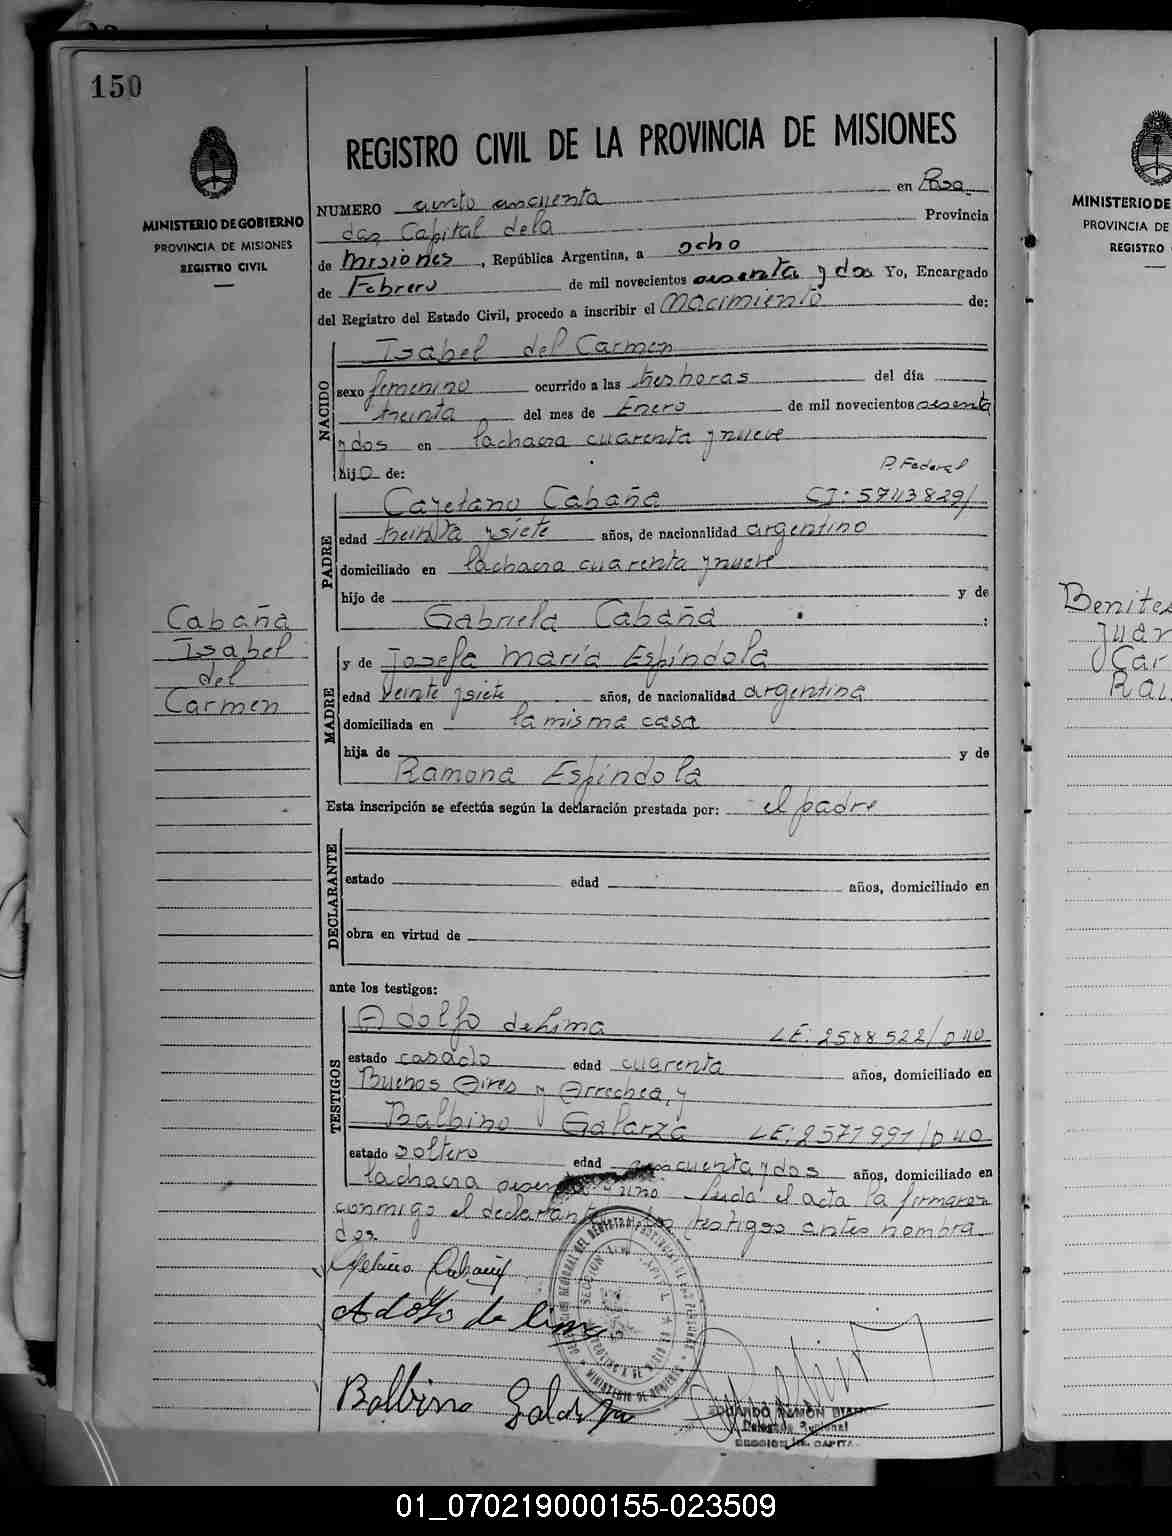 150
REGISTRO CIVIL DE LA PROVINCIA DE MISIONES
MINISTERIO DE GOBIERNO
PROVINCIA DE MISIONES
REGISTRO CIVIL
NUMERO ciento cincuenta en Posa
das Capital dela Provincia
de Misiones, República Argentina, a ocho
de Febrero de mil novecientos sesenta y dos Yo, Encargado
del Registro del Estado Civil, procedo a inscribir el Nacimiento de:
NACIDO
Isabel del Carmen
sexo femenino ocurrido a las tres horas del día
treinta del mes de Enero de mil novecientos sesenta
y dos en la chacra cuarenta y nueve
hijo de: P. Federal
PADRE
Cayetano Cabaña CI: 5743829/
edad treinta y siete años, de nacionalidad argentino
domiciliado en la chacra cuarenta y nueve
hijo de y de
Gabriela Cabaña :
Cabaña
Isabel
del
Carmen
MADRE
y de Josefa María Espíndola
edad veinte y siete años, de nacionalidad argentina
domiciliada en la misma casa
hija de y de
Ramona Espíndola
Esta inscripción se efectúa según la declaración prestada por: el padre
DECLARANTE
estado edad años, domiciliado en
obra en virtud de
ante los testigos:
TESTIGOS
Adolfo de Lima LE: 2588522/D40
estado casado edad cuarenta años, domiciliado en
Buenos Aires y Arrechea, y
Balbino Galarza LE: 2571991/D40
estado soltero edad cincuenta y dos años, domiciliado en
la chacra sesenta y uno - Leída el acta la firmaron
conmigo el declarante y los testigos antes nombra
dos
Adolfo de Lima
Balbino Galarza
EDUARDO RAMON
Delegado Regional
SECCION CAPITAL
MINISTERIO DE
PROVINCIA DE
REGISTRO
Benites
Juan
Car
Rau
01_070219000155-023509